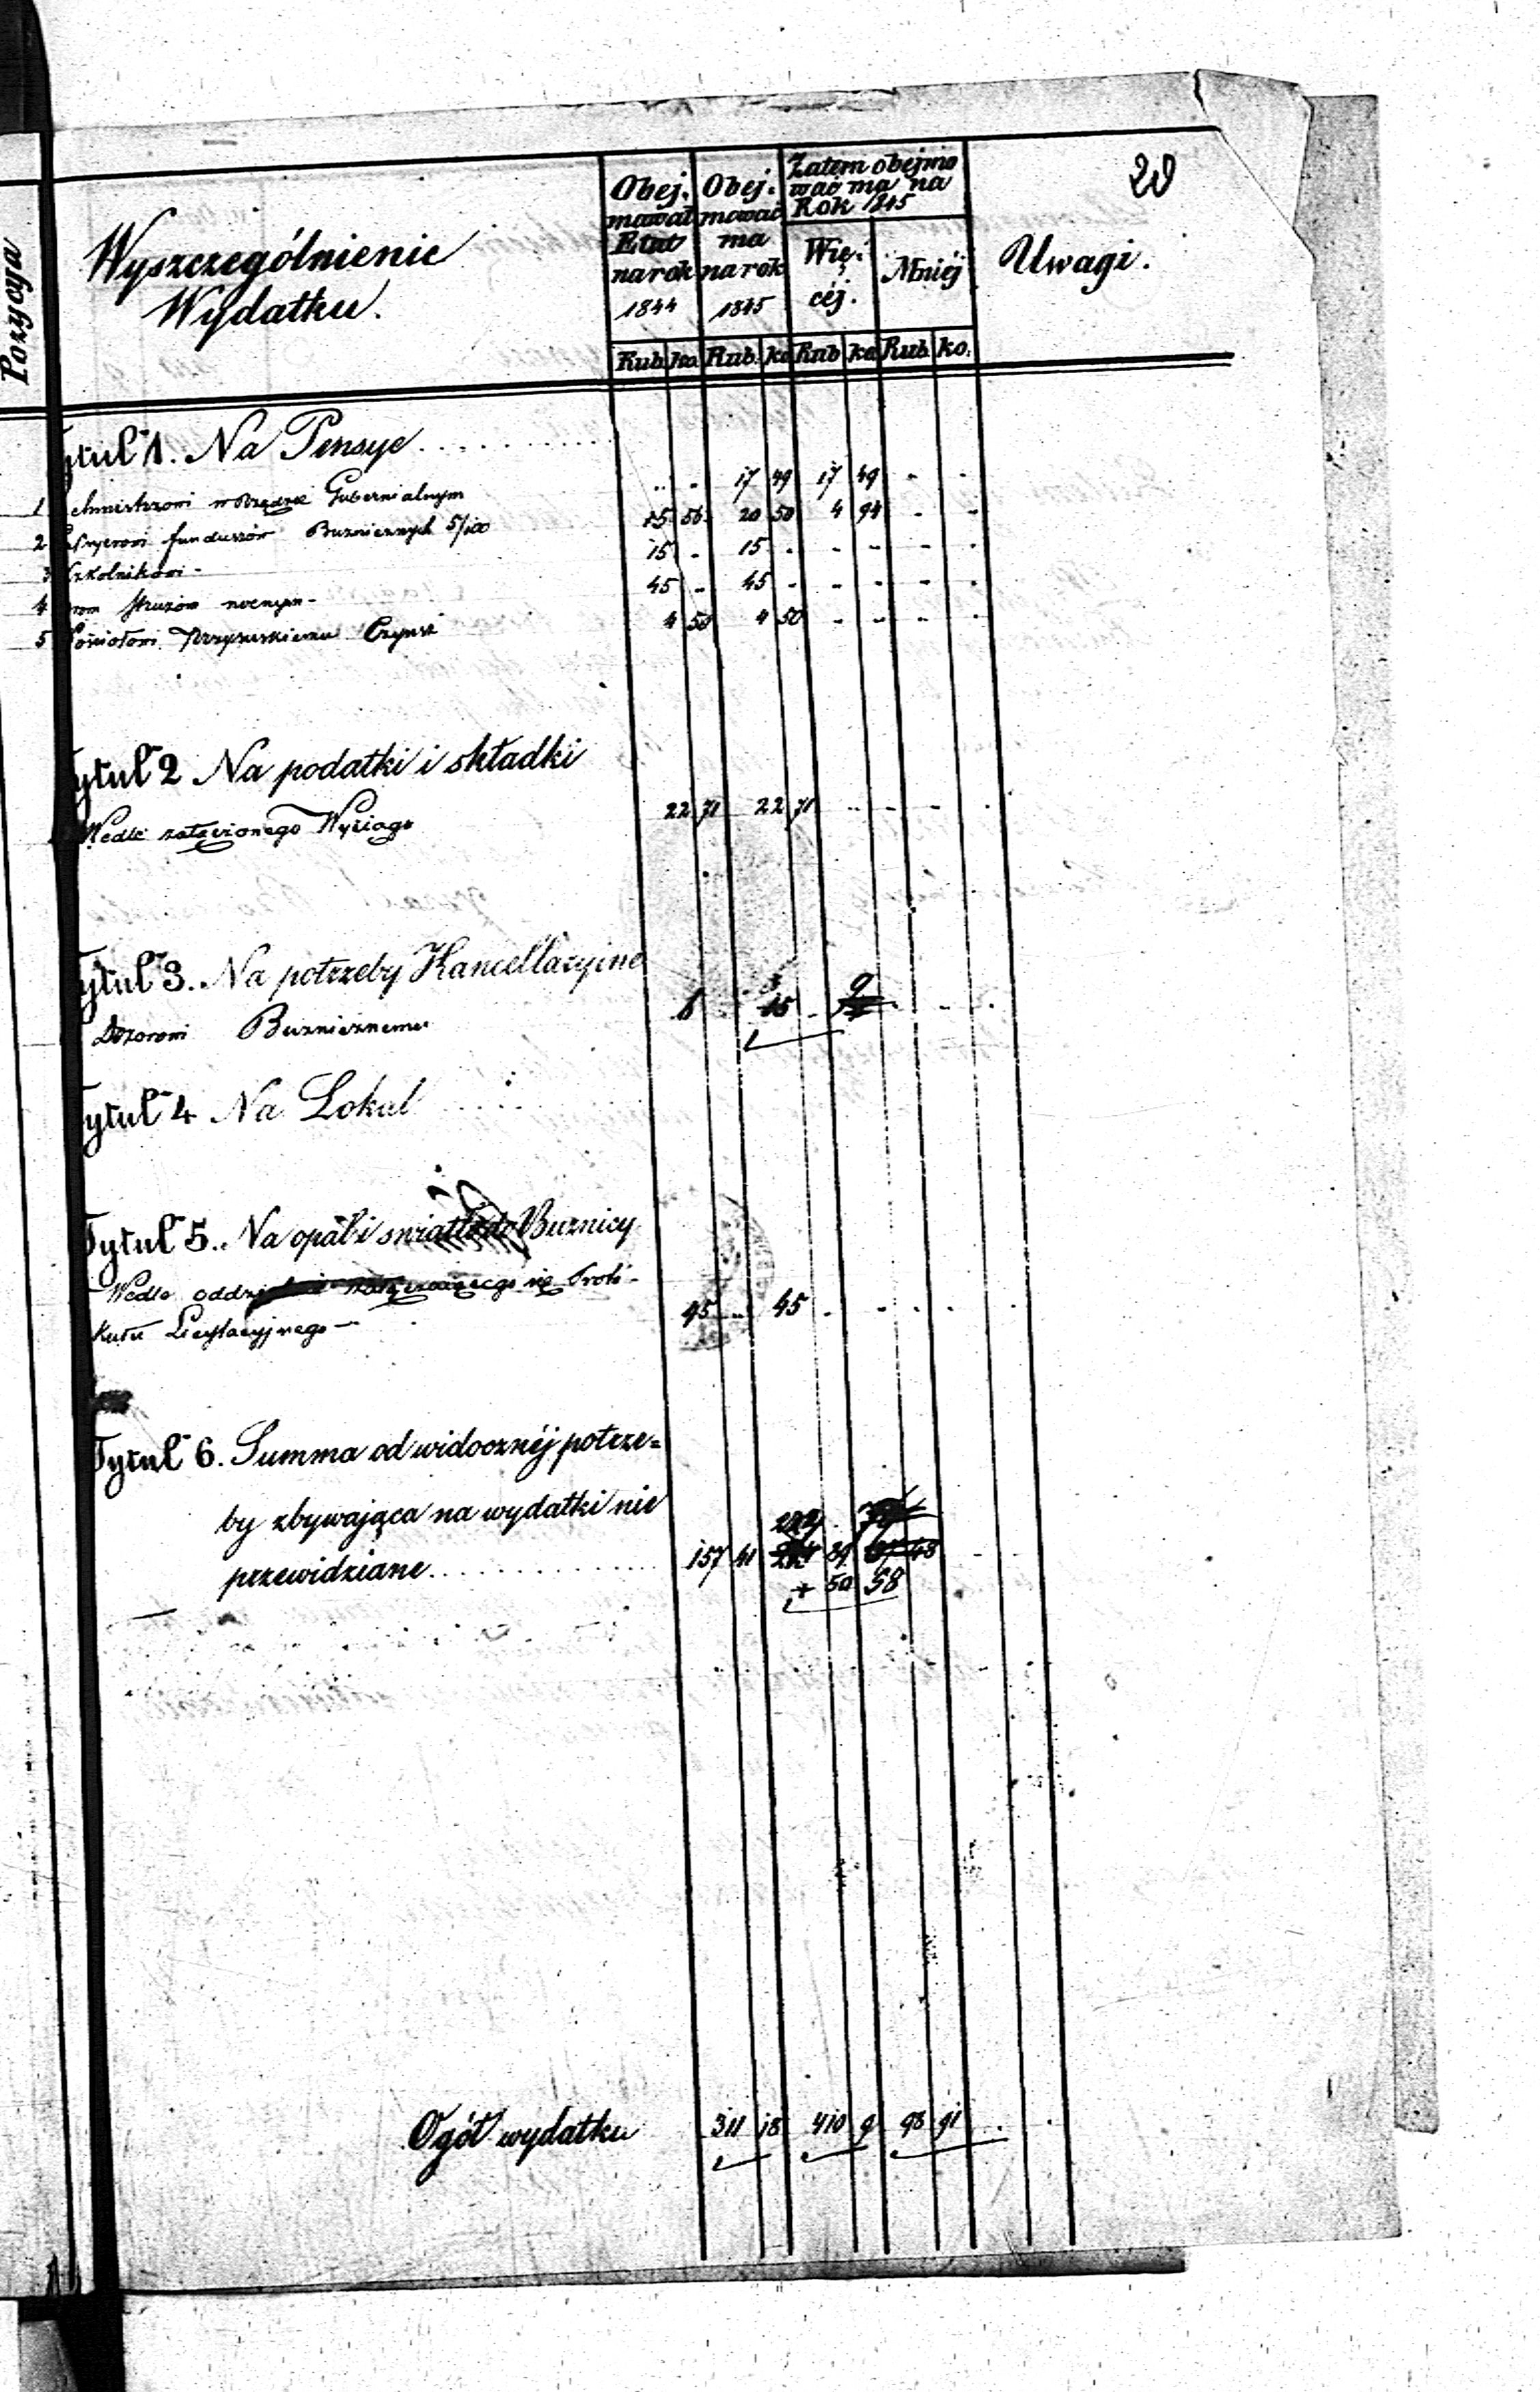 20
Pozycya
Wyszczególnienie
Wydatku.
Obej. Obej. Zatem obejmo
mował mować wać ma na
Etat ma Rok 1845
na rok na rok Wię- Mniéj
1844 1845 céj.
Uwagi.
Rub. ko. Rub. ko. Rub. ko. Rub. ko.
Tytuł 1. Na Pensye . . . . . . . . . .
1 w Rządzie Gubernialnym .. - 17 49 17 49 - -
2 funduszów Bużnicznych 5/100 15 56 20 50 4 94 - -
3 Szkolnikowi - 15 - 15 - - - - -
4 Struzom nocnym - 45 - 45 - - - - -
5 Kościołowi Czynsz 4 50 4 50 - - - -
Tytuł 2 Na podatki i składki
Wedle załączonego Wyciągu 22 71 22 71 - - - -
Tytuł 3. Na potrzeby Kancellaryine
Dozorowi Bużnicznemu 6 15 - 9 - - -
Tytuł 4 Na Lokal . . . .
Tytuł 5. Na opał i światło do Bużnicy
Wedle się Proto-
kułu Licytacyjnego - 45 - 45 - - - - -
Tytuł 6. Summa od widocznéj potrze=
by zbywająca na wydatki nie
przewidziane . . . . . . . . . . . . . . 157 41 39 48 - -
+ 50 58
Ogół wydatku 311 18 410 9 98 91 - -